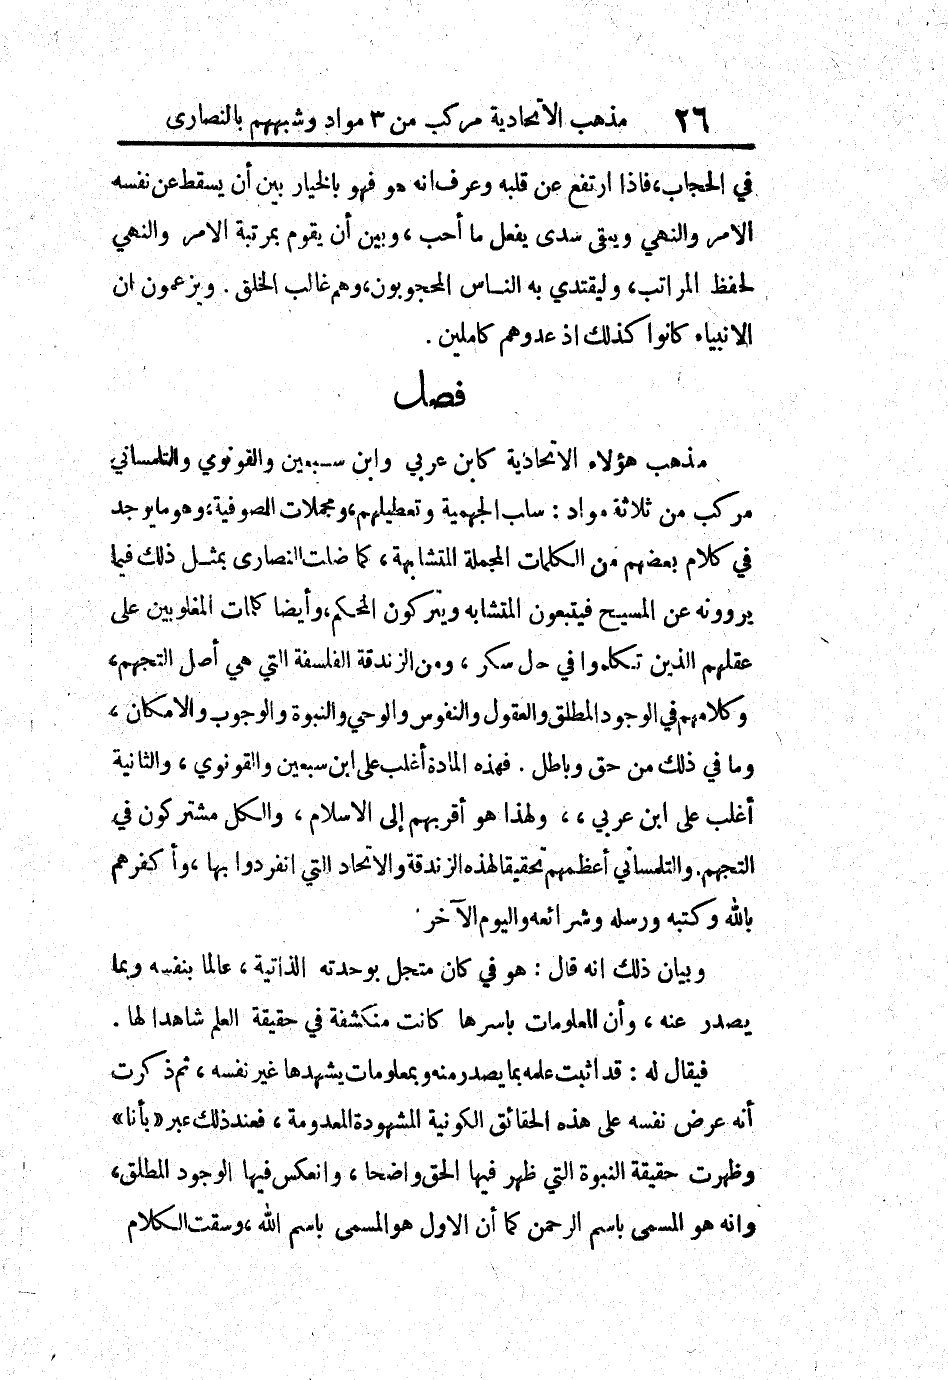 ٢٦ مذهب الاتحادية مركب من ٣ مواد وشبههم بالنصارى
في الحجاب، فاذا ارتفع عن قلبه وعرف انه هو فهو بالخيار بين أن يسقط عن نفسه
الامر والنهي ويبقى سدى يفعل ما أحب، وبين أن يقوم بمرتبة الامر والنهي
لحفظ المراتب، وليقتدي به النــاس المحجوبون، وهم غالب الخلق . ويزعمون ان
الانبياء كانوا كذلك اذ عدوهم كاملين .
فصل
مذهب هؤلاء الاتحادية كابن عربي وابن سبعين والقونوي والتلمساني
مركب من ثلاثة مواد : سلب الجهمية وتعطيلهم، ومجملات الصوفية، وهو ما يوجد
في كلام بعضهم من الكلمات المجملة المتشابهة، كما ضلت النصارى بمثــل ذلك فيما
يروونه عن المسيح فيتبعون المتشابه ويتركون المحكم، وأيضا كلمات المغلوبين على
عقلهم الذين تكلموا في حال سكر، ومن الزندقة الفلسفة التي هي أصل التجهم،
وكلامهم في الوجود المطلق والعقول والنفوس والوحي والنبوة والوجوب والامكان،
وما في ذلك من حق وباطل . فهذه المادة أغلب على ابن سبعين والقونوي، والثانية
أغلب على ابن عربي،، ولهذا هو أقربهم إلى الاسلام، والكل مشتركون في
التجهم. والتلمساني أعظمهم تحقيقا لهذه الزندقة والاتحاد التي انفردوا بها، وأكفرهم
بالله وكتبه ورسله وشرائعه واليوم الآخر
وبيان ذلك انه قال : هو في كان متجل بوحدته الذاتية، عالما بنفسه وبما
يصدر عنه، وأن المعلومات باسرها كانت منكشفة في حقيقة العلم شاهدا لها .
فيقال له : قد اثبت علمه بما يصدر منه وبمعلومات يشهدها غير نفسه، ثم ذكرت
أنه عرض نفسه على هذه الحقائق الكونية المشهودة المعدومة، فعند ذلك عبر «بأنا»
وظهرت حقيقة النبوة التي ظهر فيها الحق واضحا، وانعكس فيها الوجود المطلق،
وانه هو المسمى باسم الرحمن كما أن الاول هو المسمى باسم الله، وسقت الكلام